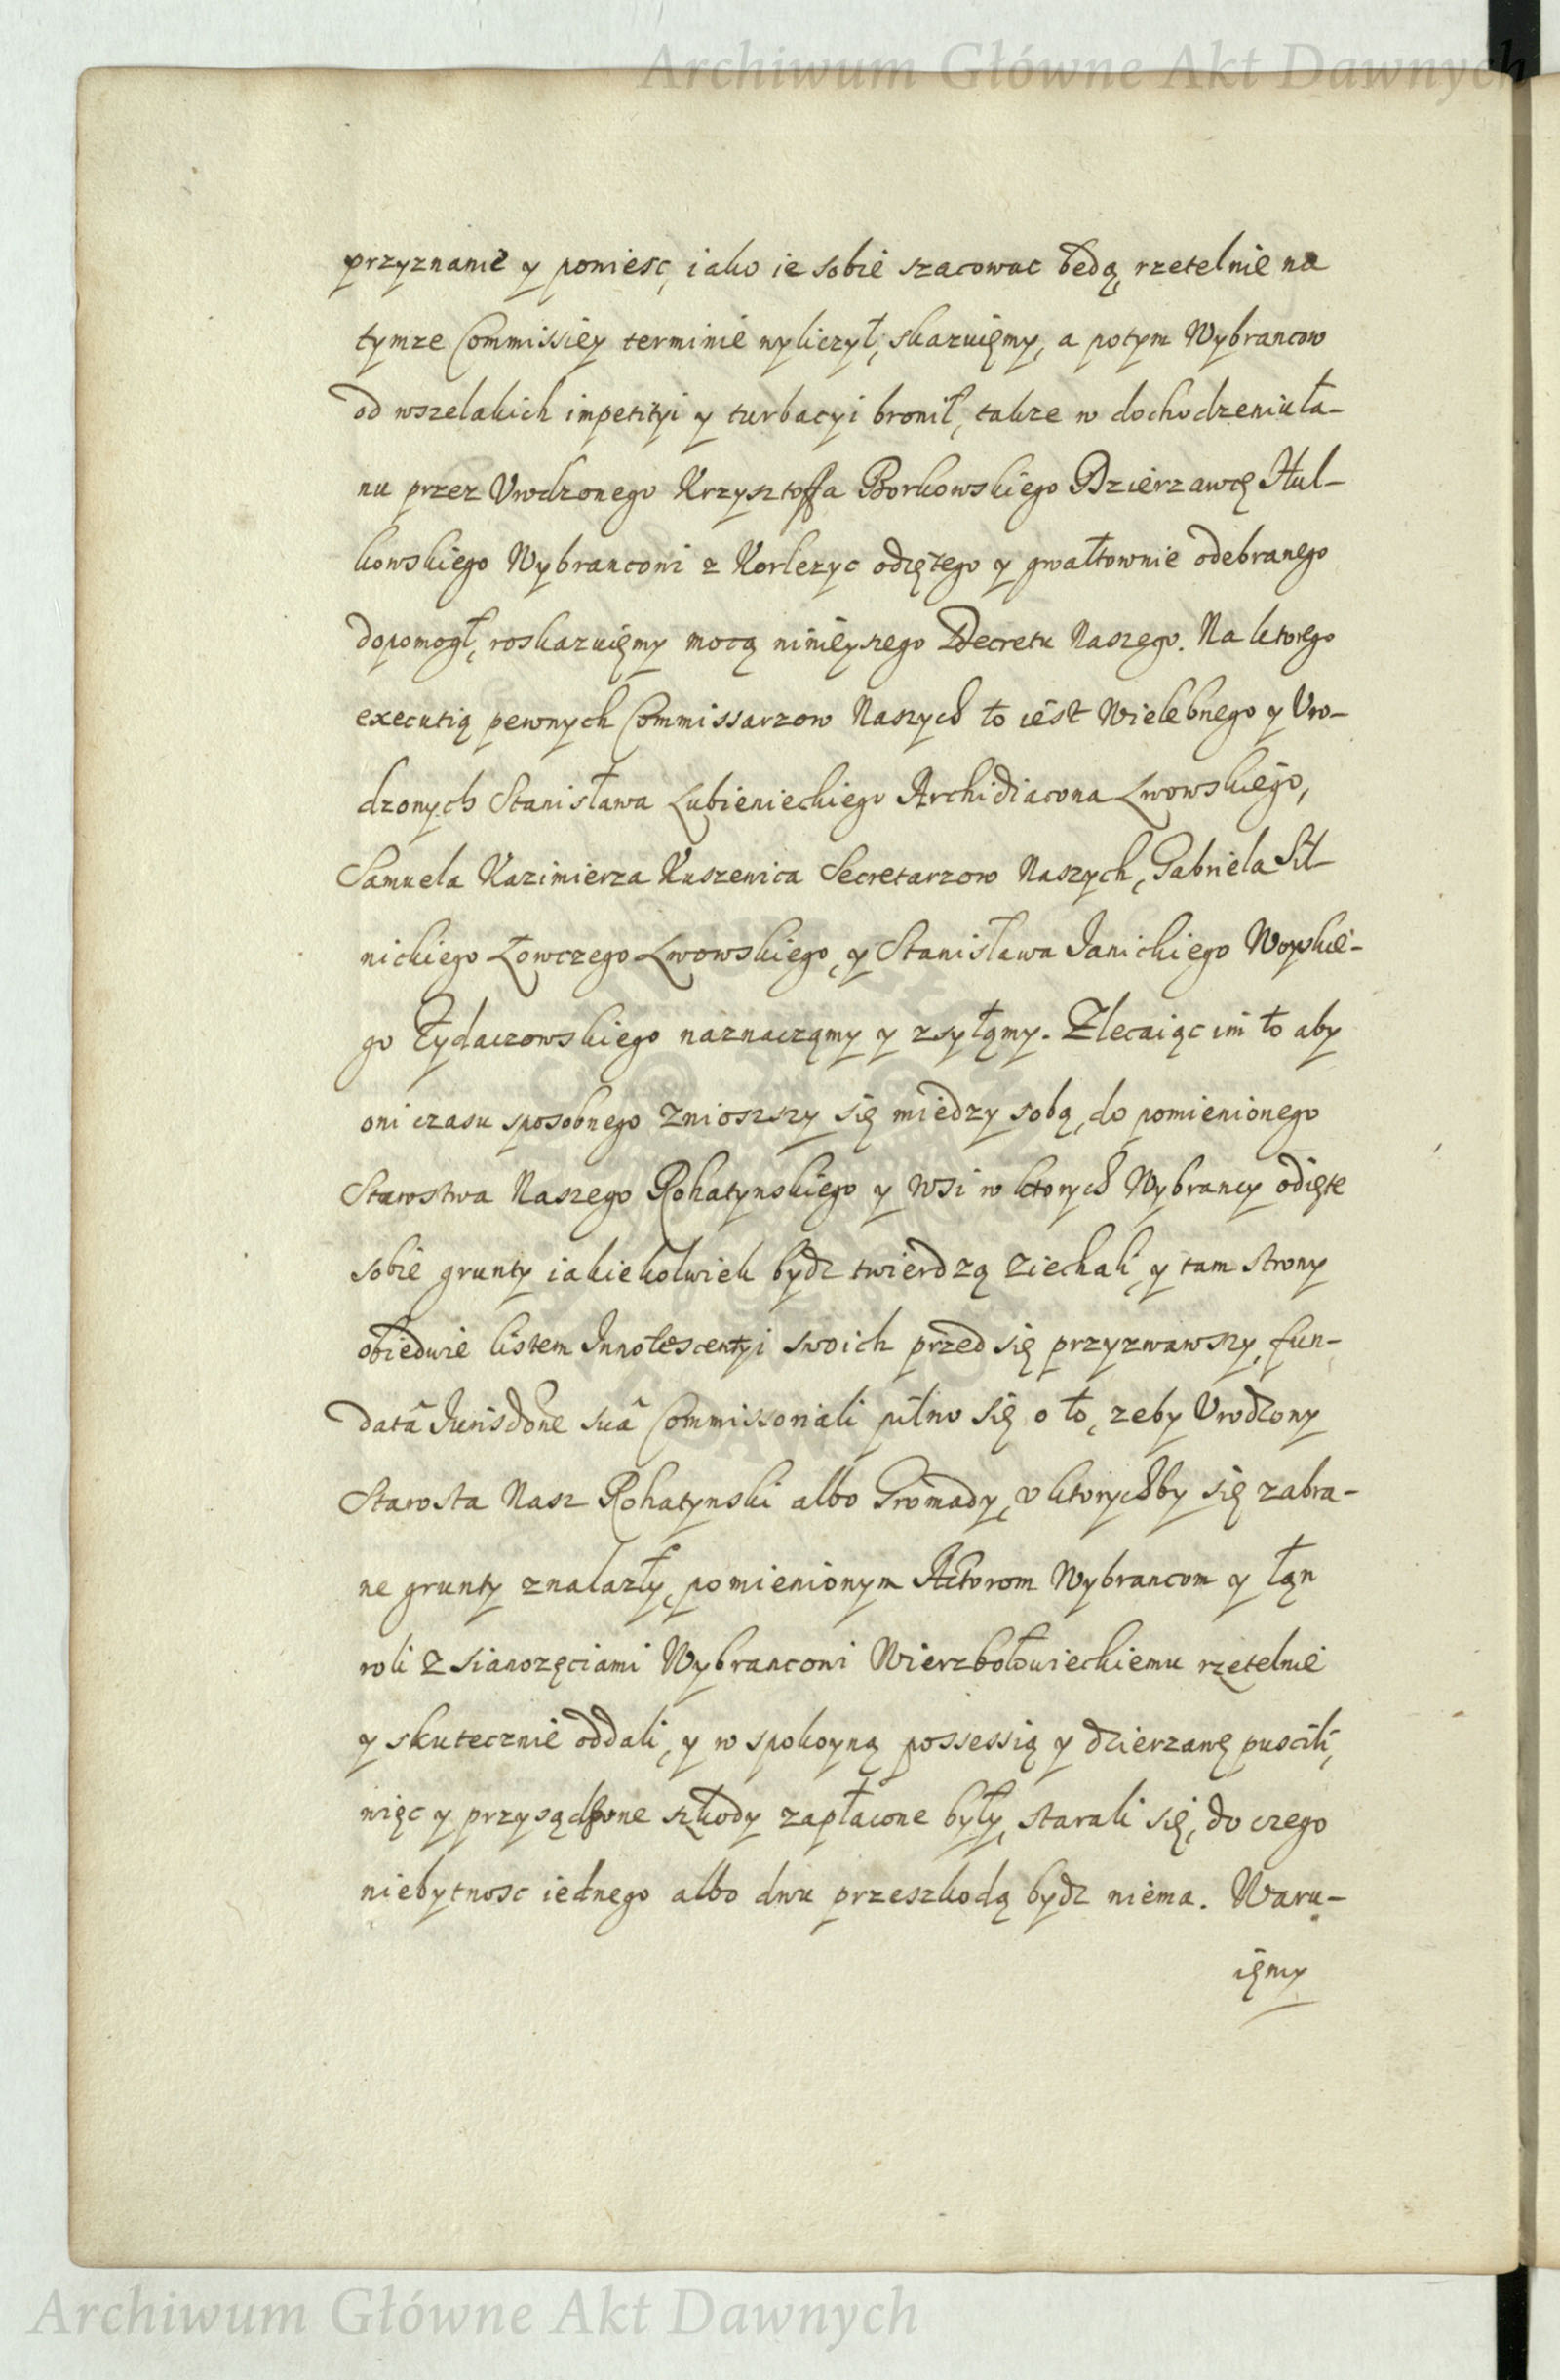 Archiwum Główne Akt Dawnych
przyznanie y poniesc, iako ie sobie szacowac będą, rzetelnie na
tymze Commissiey terminie wyliczył, skazuięmy, a potym Wybrancow
od wszelakich impetityi y turbacyi bronił, takze w dochodzeniu ła-
nu przez Vrodzonego Krzysztoffa Borkowskiego Dzierzawcę Hul-
kowskiego Wybrancowi z Korlezyc odiętego y gwałtownie odebranego
dopomogł, roskazuięmy mocą ninieyszego Decretu Naszego. Na ktorego
executią pewnych Commissarzow Naszych to iest Wielebnego y Vro-
dzonych Stanisława Lubienieckiego Archidiacona Lwowskiego,
Samuela Kazimierza Kuszewica Secretarzow Naszych, Gabriela Sil-
nickiego Łowczego Lwowskiego, y Stanisława Janickiego Woyskie-
go Zydaczowskiego naznaczamy y zsyłamy. Zlecaiąc im to aby
oni czasu sposobnego zniozszy się miedzy sobą, do pomienionego
Starostwa Naszego Rohatynskiego y wsi w ktorych Wybrancy odięte
sobie grunty iakiekolwiek bydz twierdzą ziechali, y tam strony
obiedwie listem Innotescentyi swoich przed się przyzwawszy, fun-
datâ Jurisdone suâ Commissoriali pilno się o to, zeby Vrodzony
Starosta Nasz Rohatynski albo Gromady, v ktorychby się zabra-
ne grunty znalazły, pomienionym Actorom Wybrancom y łąn
roli z sianozęciami Wybrancowi Wierzbołowieckiemu rzetelnie
y skutecznie oddali, y w spokoyną possessią y dzierzawę puscili,
więc y przysądzone szkody zapłacone były, starali się, do czego
niebytnosc iednego albo dwu przeszkodą bydz niema. Waru-
ięmy
Archiwum Główne Akt Dawnych